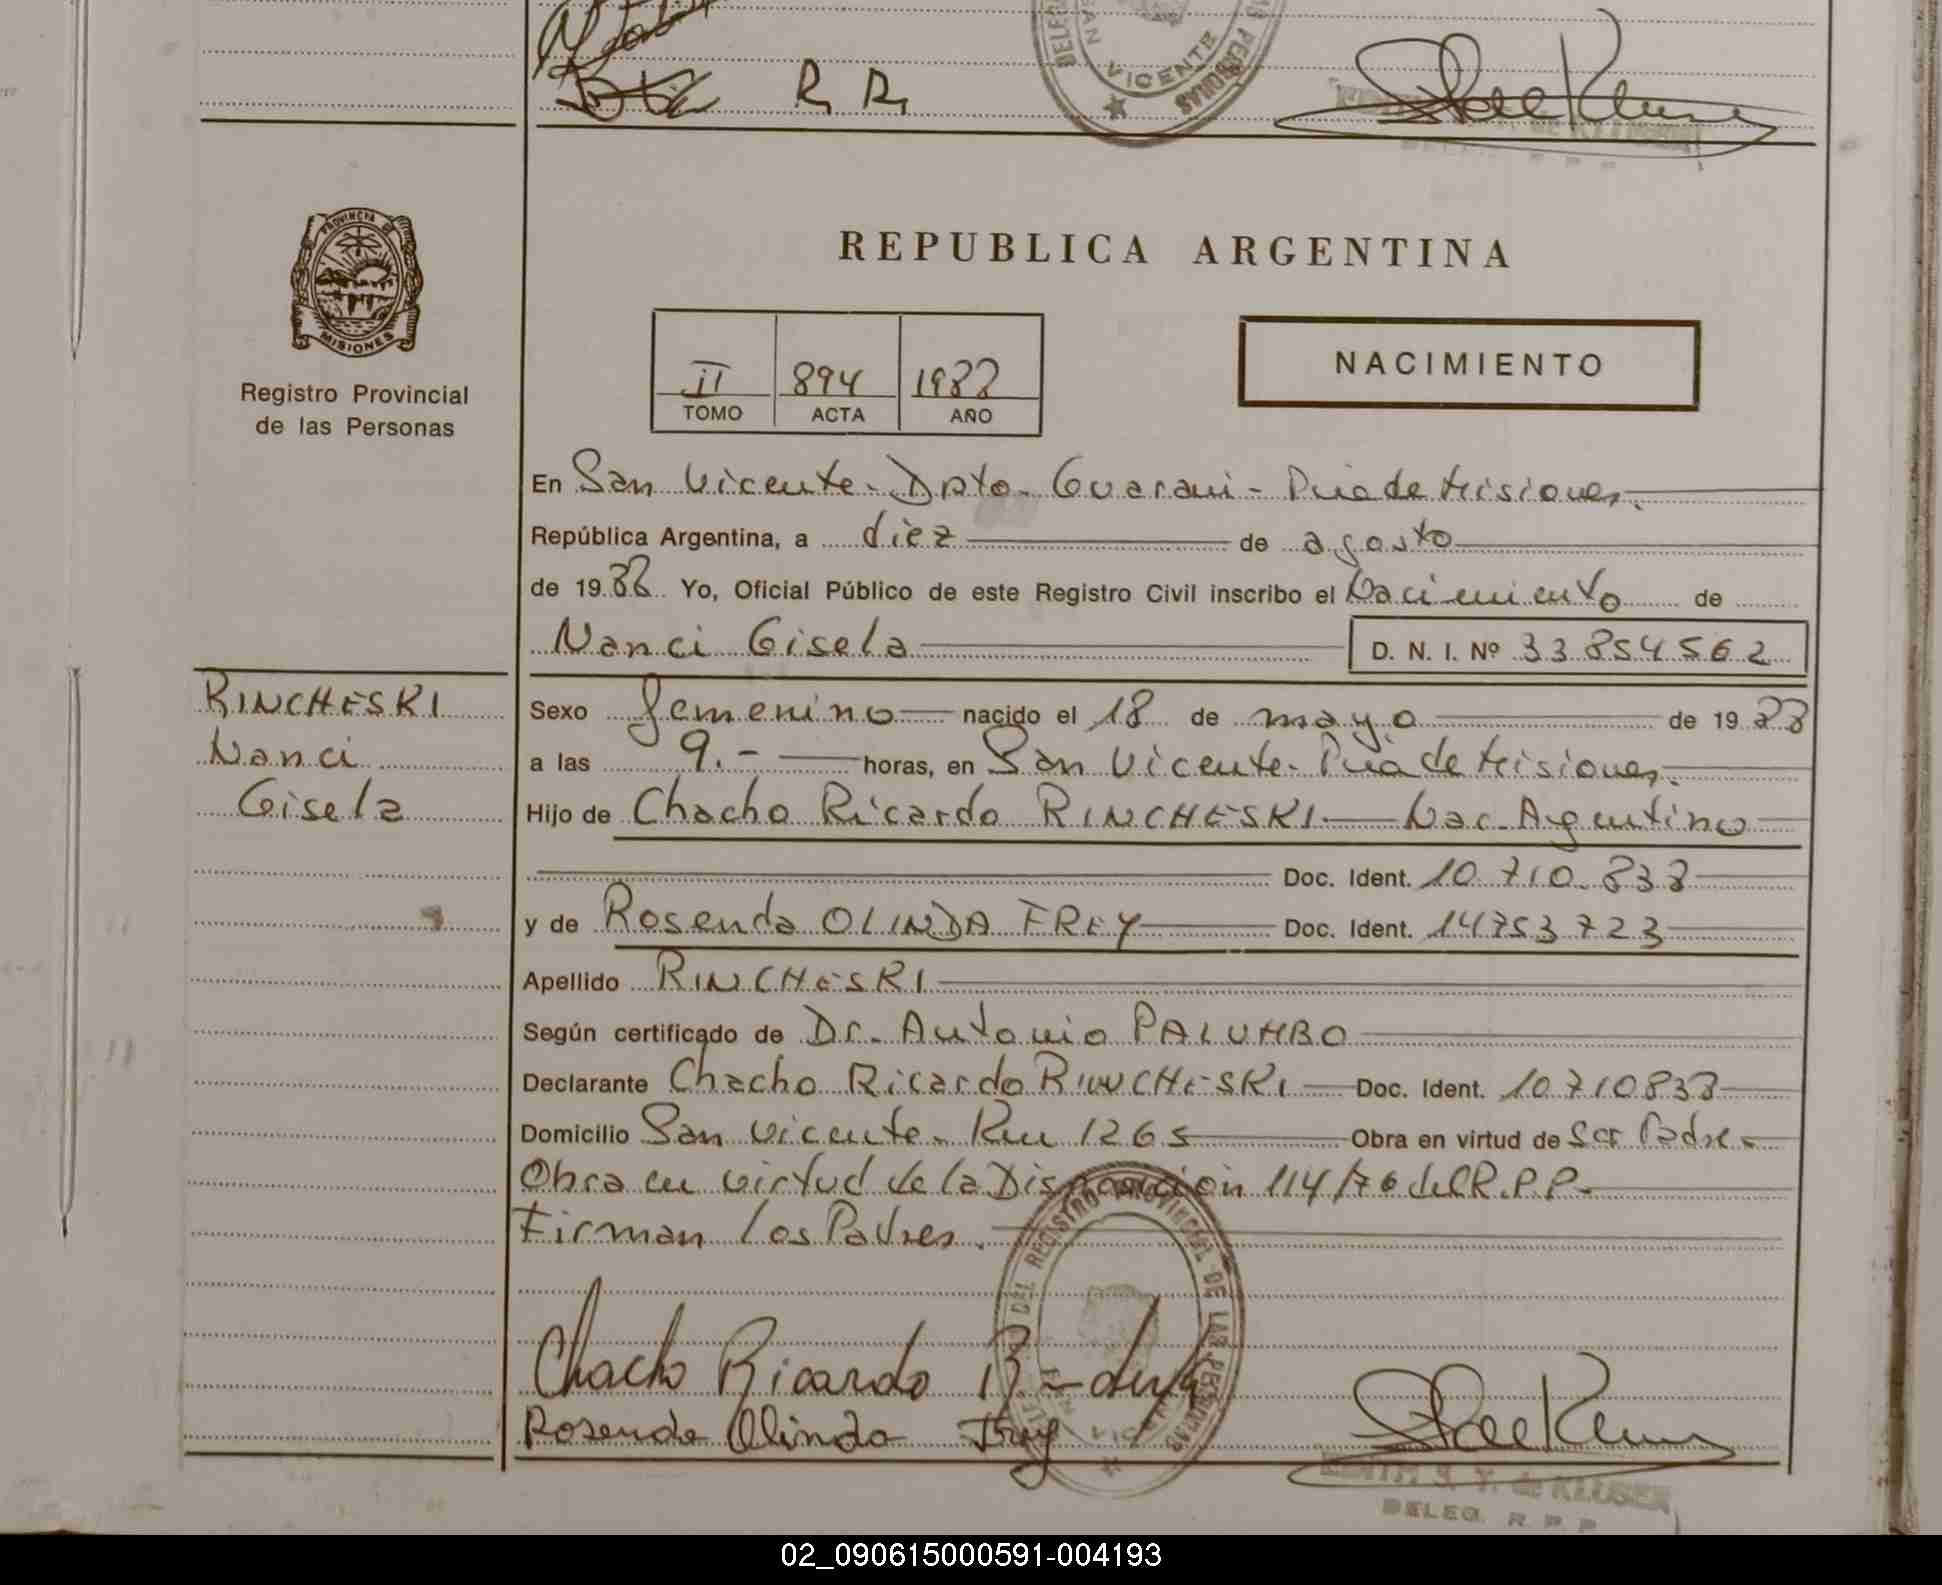 R. R.
VICENTE
PROVINCIA
MISIONES
Registro Provincial
de las Personas
REPUBLICA ARGENTINA
II 894 1988
TOMO ACTA AÑO
NACIMIENTO
En San Vicente - Dpto. Guarani - Pcia de Misiones.
República Argentina, a diez de agosto
de 1988 Yo, Oficial Público de este Registro Civil inscribo el Nacimiento de
Nanci Gisela D. N. I. Nº 33854562
RINCHESKI
Nanci
Gisela
Sexo femenino nacido el 18 de mayo de 1988
a las 9.- horas, en San Vicente - Pcia de Misiones.
Hijo de Chacho Ricardo RINCHESKI - Nac. Argentino
Doc. Ident. 10.710.838
y de Rosenda OLINDA FREY Doc. Ident. 14753723
Apellido RINCHESKI
Según certificado de Dr. Antonio PALUMBO
Declarante Chacho Ricardo RINCHESKI Doc. Ident. 10710838
Domicilio San Vicente - Km 1265 Obra en virtud de Ser Padre -
Obra en virtud de la Disposición 114/76 del R.P.P. -
Firman los Padres.
DEL REGISTRO PROVINCIAL DE LAS PERSONAS
Chacho Ricardo
Rosenda Olinda Frey
EDITH S. T. de KLUSER
DELEG. R. P. P.
02_090615000591-004193